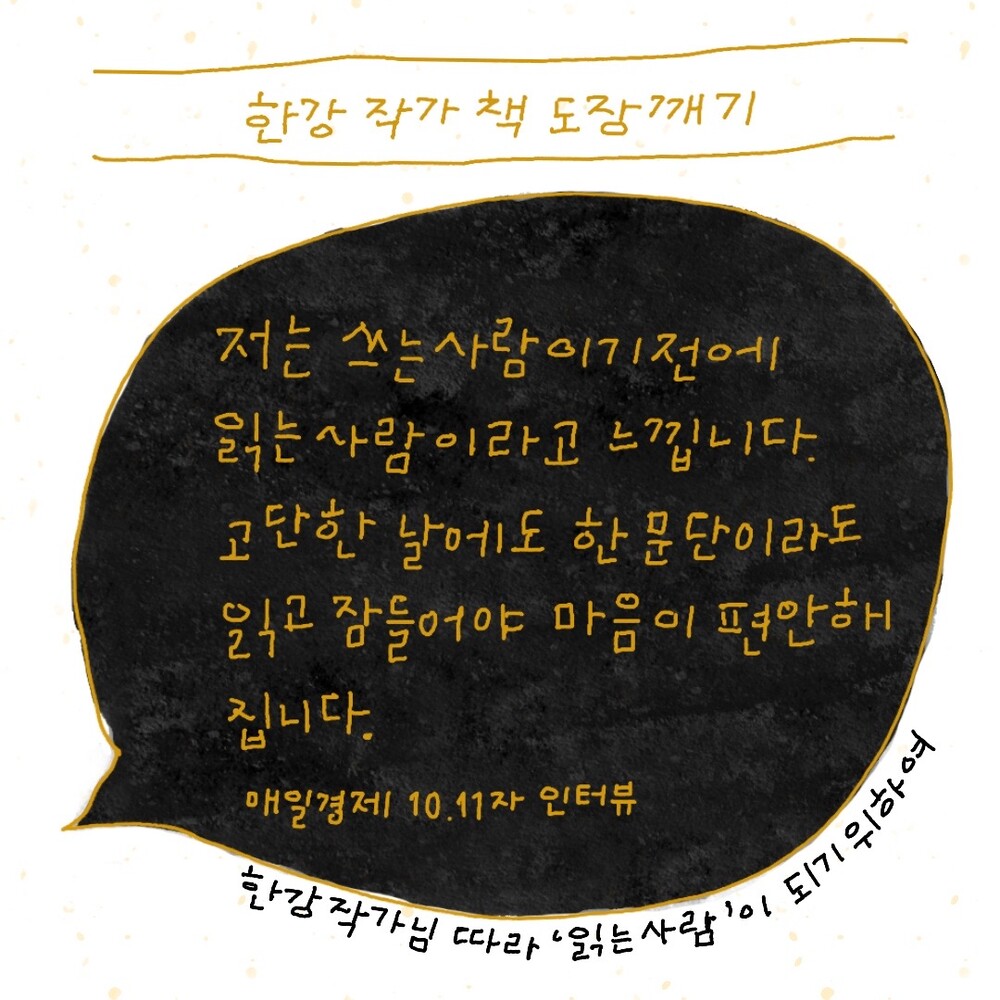 한강 작가 책 도장깨기
저는 쓰는사람이기전에
읽는사람이라고 느낍니다.
고단한 날에도 한 문단이라도
읽고 잠들어야 마음이 편안해
집니다.
매일경제 10.11자 인터뷰
한강작가님 따라 '읽는사람'이 되기위하여